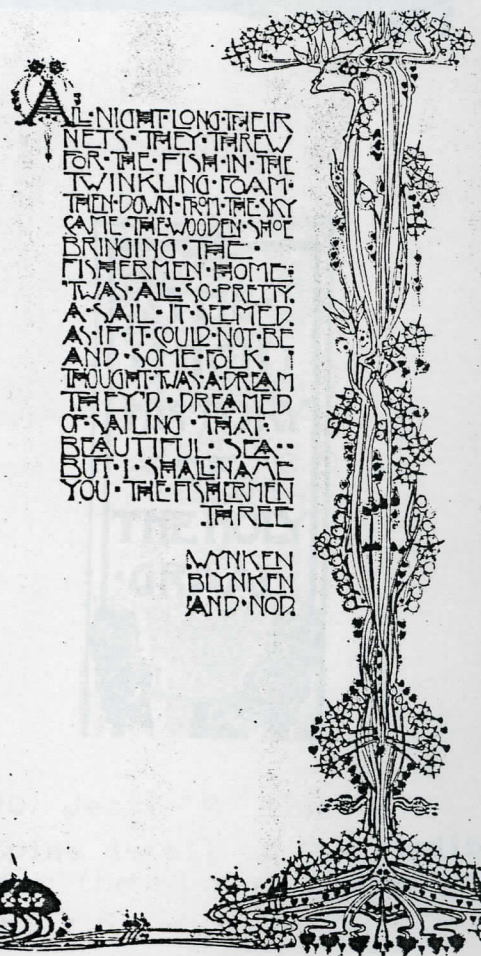 ALL·NIGHT·LONG·THEIR
NETS·THEY·THREW
FOR·THE·FISH·IN·THE
TWINKLING·FOAM·
THEN·DOWN·FROM·THE·SKY
CAME·THE·WOODEN·SHOE
BRINGING·THE·
FISHERMEN·HOME:
'TWAS·ALL·SO·PRETTY.
A·SAIL·IT·SEEMED.
AS·IF·IT·COULD·NOT·BE
AND·SOME·FOLK·
THOUGHT·TWAS·A·DREAM
THEY'D·DREAMED
OF·SAILING·THAT·
BEAUTIFUL·SEA··
BUT·I·SHALL·NAME
YOU·THE·FISHERMEN
THREE
WYNKEN
BLYNKEN
AND·NOD.